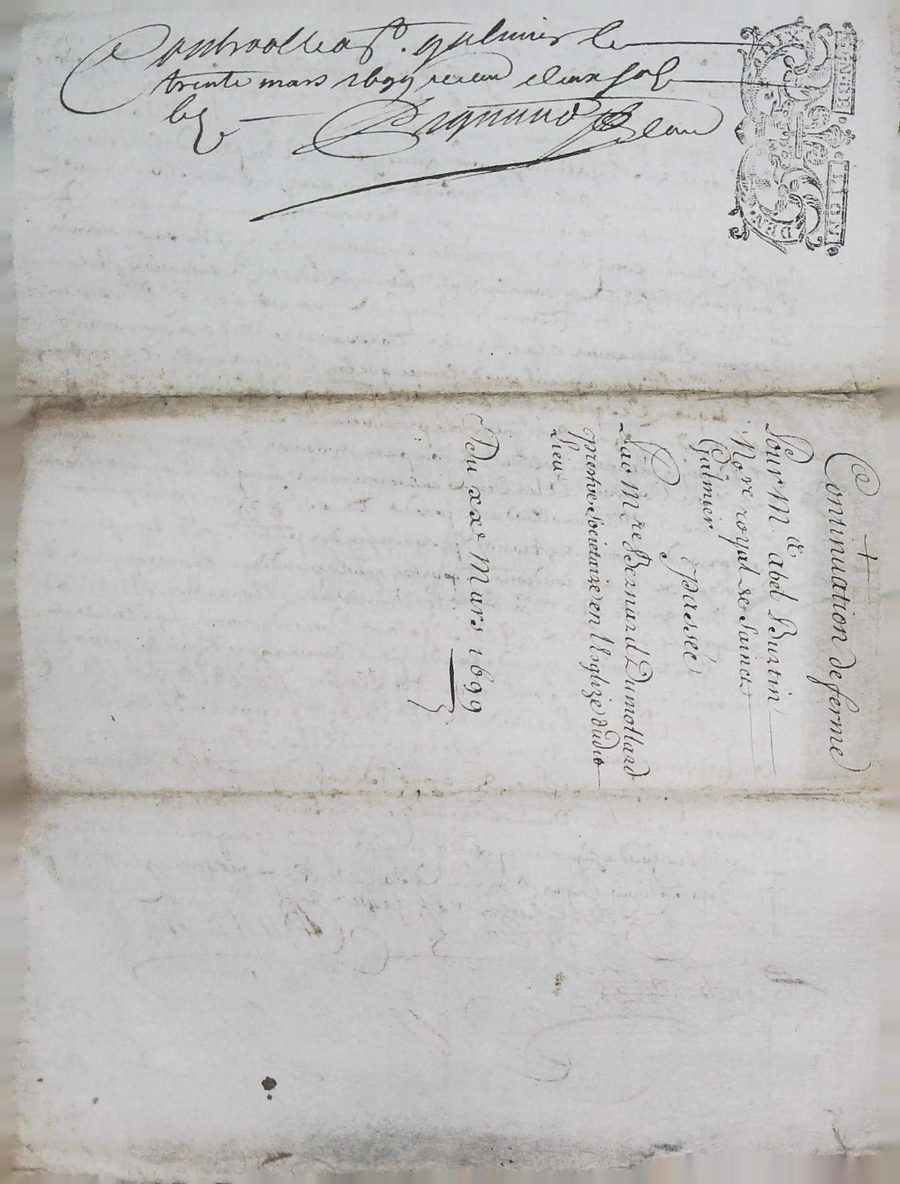 Controolle a St. galmier le
trente mars 1699 receu deux sols
GENER. LION
DEUX DEN.
+
Continuation de ferme
Pour Me abel Burtin
No.re royal de Sainct
Galmier
passée
Par M.re Bernard Dumollard
prestre Societaire en l'Eglize dudit
Lieu
Du xxe Mars 1699